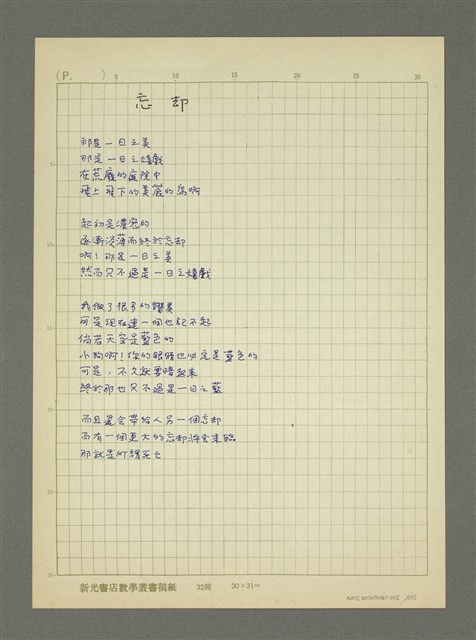 (P. )
5 10 15 20 25 30
忘却
那是一日之美
那是一日之嬉戲
在荒廢的庭院中
飛上飛下的美麗的鳥啊
起初是濃密的
逐漸淡薄而終於忘却
啊！那是一日之美
然而只不過是一日之嬉戲
我做了很多的讚美
可是現在連一個也記不起
倘若天空是藍色的
小狗啊！你的眼睛也必定是藍色的
可是，不久就要暗起來
終於那也只不過是一日之藍
而且還會帶給人另一個忘却
而有一個更大的忘却將會來臨
那就是所謂死亡
5
10
15
20
25
30
新光書店數學叢書稿紙 32開 30×31=